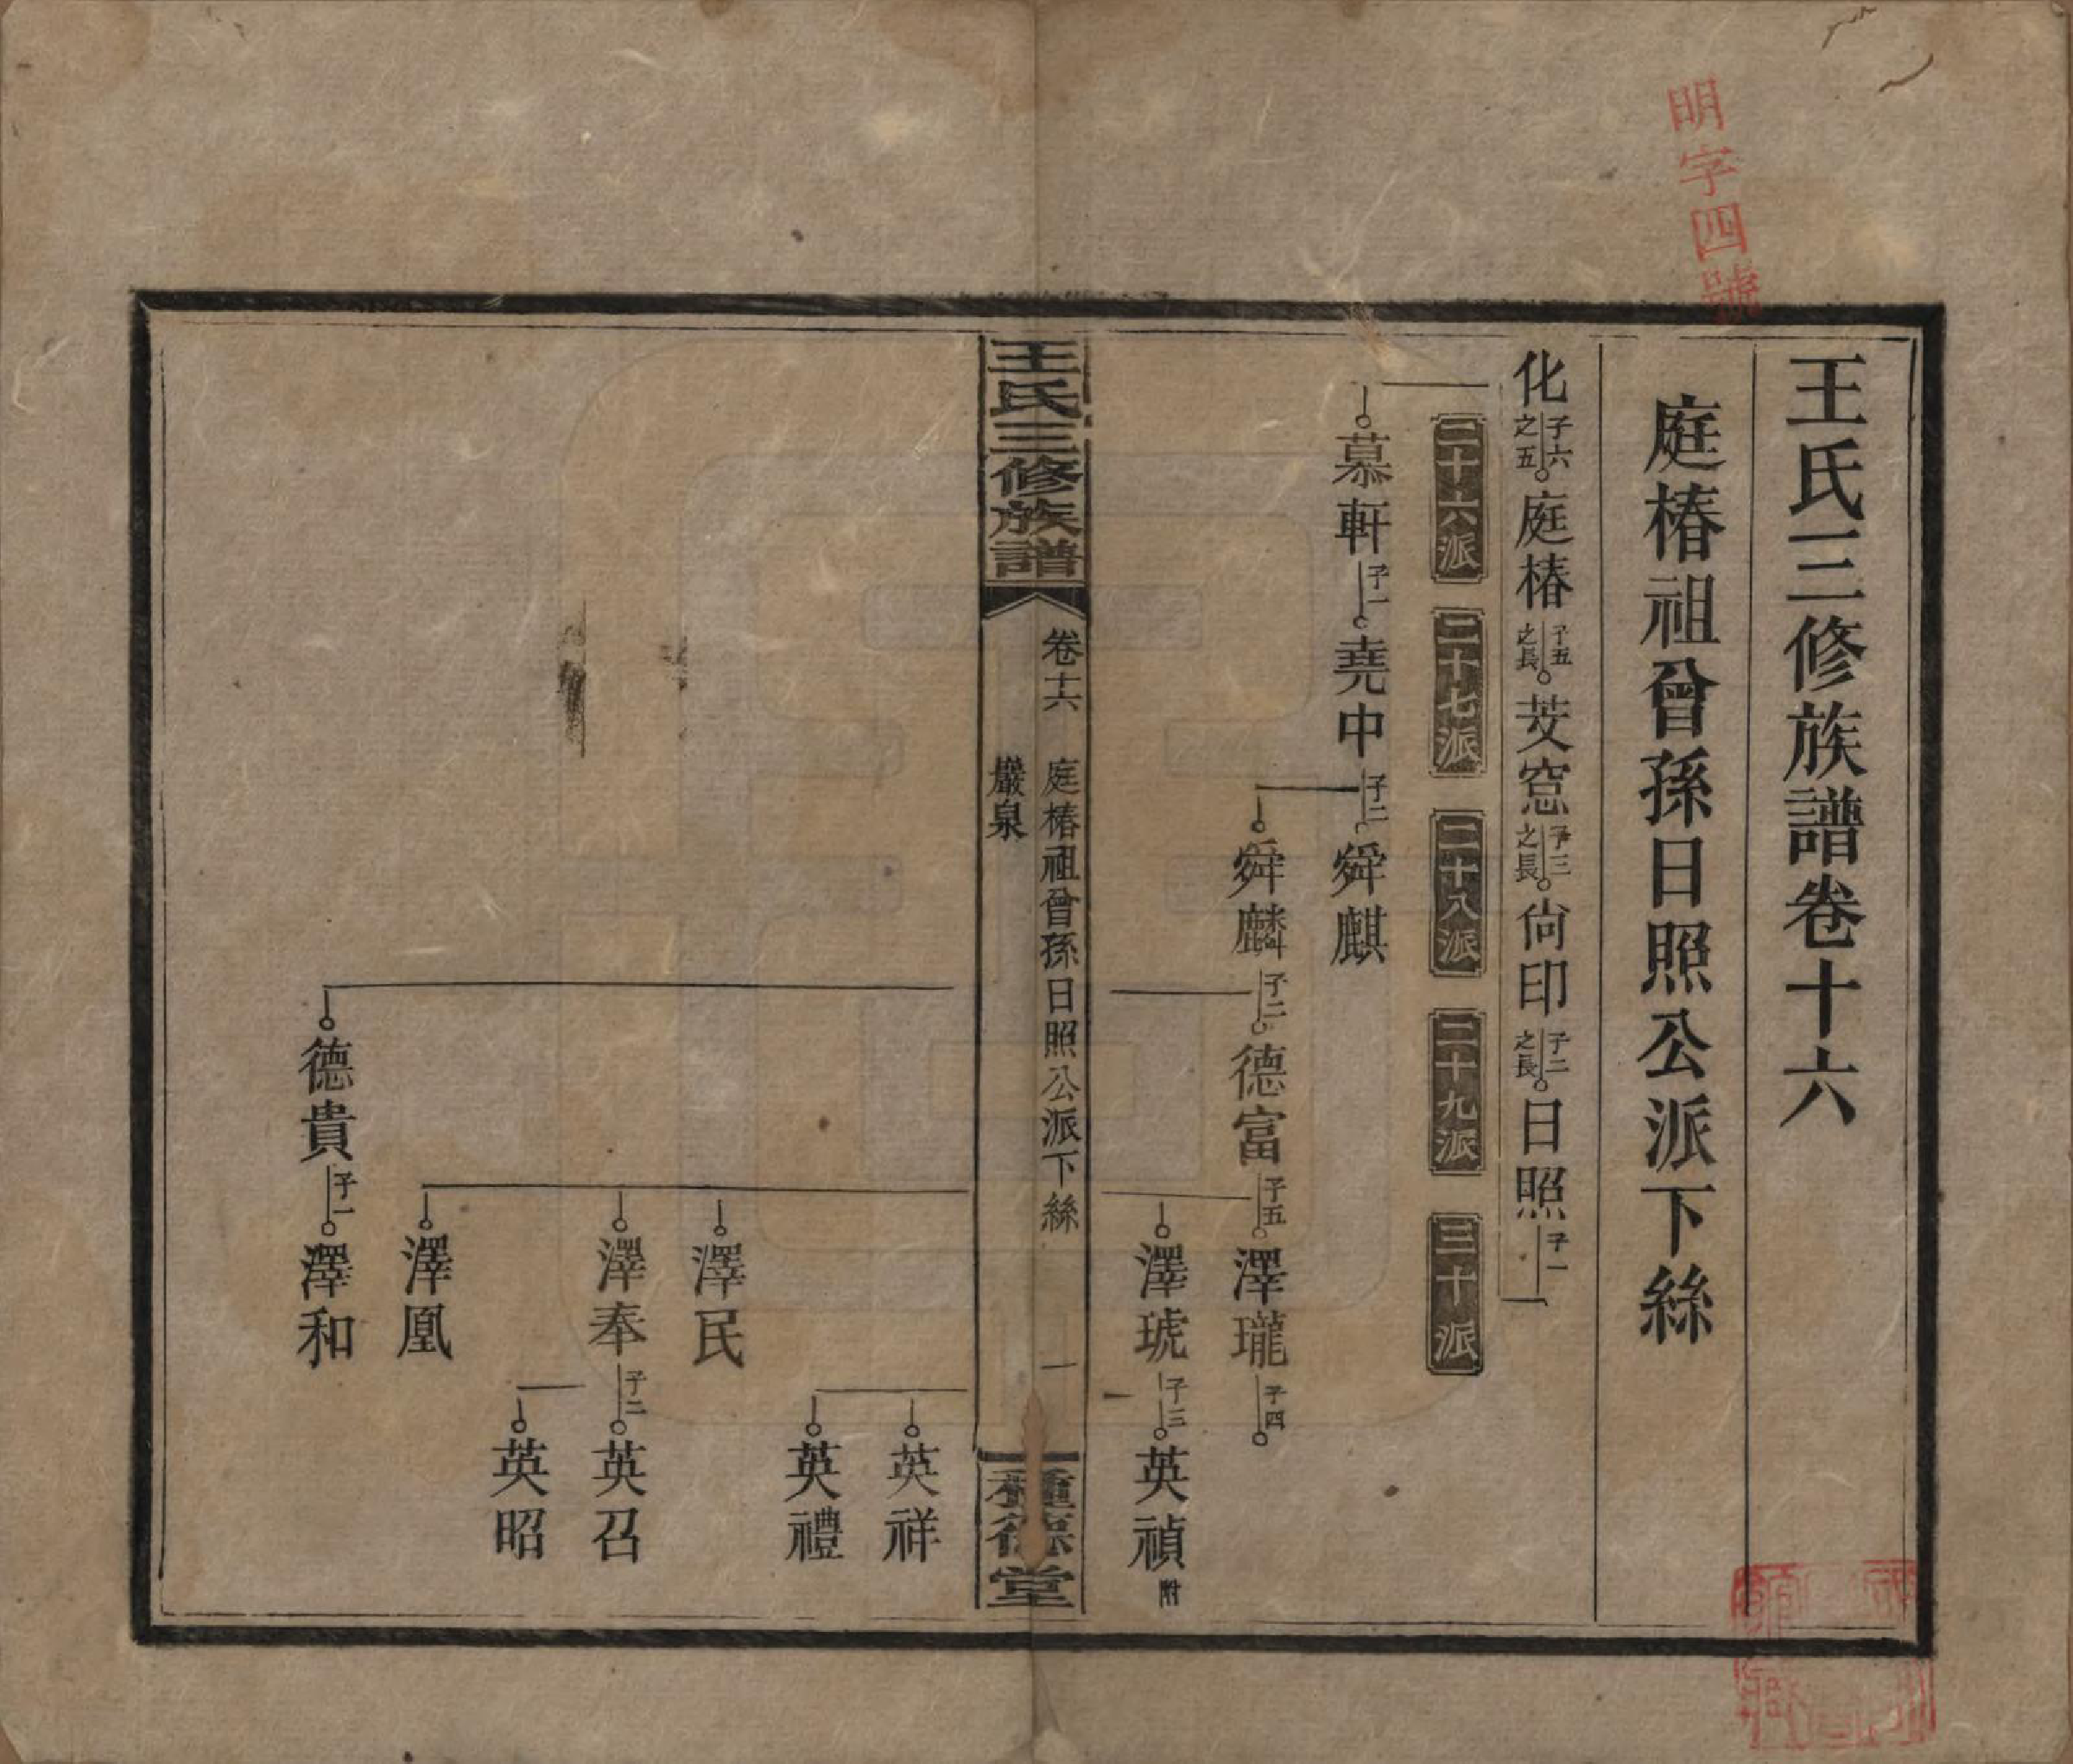 明字四號
王氏三修族譜卷十六
庭椿祖曾孫日照公派下絲
化 子六之五 庭椿 子五之長 芠窓 子三之長 尙印 子二之長 日照 子一
二十六派 二十七派 二十八派 二十九派 三十派
慕軒 子一 堯中 子二 舜麒
舜麟 子二 德富 子五 澤瓏 子四
澤琥 子三 英禎 附
王氏三修族譜 卷十六 庭椿祖曾孫日照公派下絲 一 種德堂
巖泉
英祥
英禮
澤民
澤奉 子二 英召
英昭
澤凰
德貴 子一 澤和